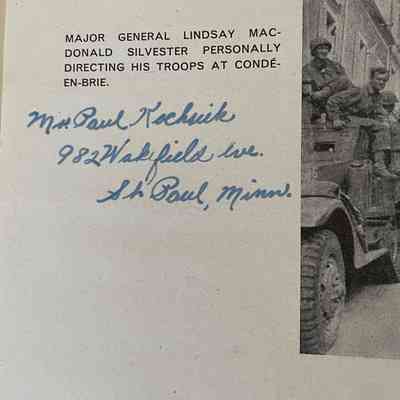 MAJOR GENERAL LINDSAY MAC-
DONALD SILVESTER PERSONALLY
DIRECTING HIS TROOPS AT CONDÉ-
EN-BRIE.
Paul
982 Wakefield Ave.
St Paul, Minn.